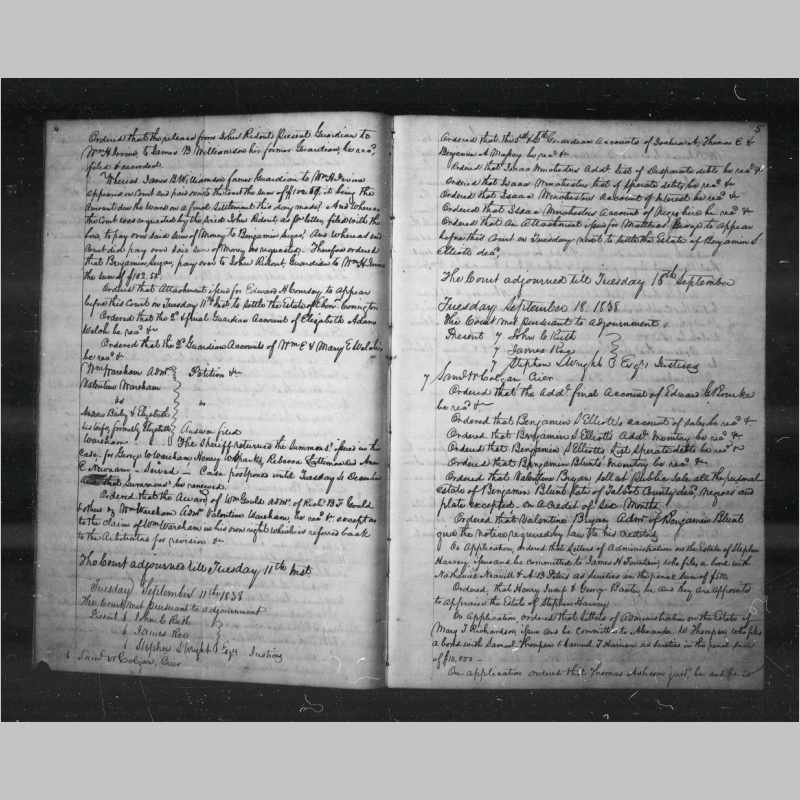 4
Ordered that the release from John Ridout Present Guardian to
Wm H. Irvine to James B Williamson his former Guardian, be recd
filed & recorded.
Whereas James B Williamson former Guardian to Wm H Irvine
appears in Court and pays into the Court the sum of
amount due the ward on a final settlement this day made. And Whereas
the Court was requested by the said John Ridout, as pr letter filed with the
to pay over said sum of Money to Benjamin And Whereas said
Court did pay over said sum of Money as requested. Therefore ordered
that Benjamin pay over to John Ridout, Guardian to Wm H Irvine
the sum of
Ordered that Attachment issue for Edward H Coursey to appear
before this Court on Tuesday 11th Inst. to settle the Estate of Covington
Ordered the 2d & final Guardian Account of Elizabeth Adams
Welch be recd &c
Ordered that the 2d Guardian Accounts of Wm E & Mary E Welch
be recd &c
Wm Wareham Admr
Valentine Wareham
vs
Isaac & Elizabeth
his wife, formerly Elizabeth
Wareham
Petition &c
Answer filed
The Sheriff returned the Summons issued in the
case for George W Wareham Henry W Sparks, Rebecca Ann
E Newnam - Served - Case postponed until Tuesday 4 December
that Summons be renewed
Ordered that the Award of Wm Gould admr of Richd B F Gould
& others vs Wm Wareham Admr Valentine Wareham, be recd & except as
to the claim of Wm Wareham in his own right which is referred back
to the Arbitrators for revision &c
The Court adjourned till Tuesday 11th Inst.
Tuesday September 11th 1838
The Court met pursuant to adjournment
Present 6 John C Ruth
6 James Rea
6 Stephen Wright Esqrs Justices
6 Saml W Cooljan, Crier
5
Ordered that the 5th & 6th Guardian Accounts of Joshua A, Thomas E &
Benjamin A Massey be recd &c
Ordered that Isaac Winchesters Addl. List of Desperate debts be recd &c
Ordered that Isaac Winchesters list of Sperate debts, be recd &c
Ordered that Isaac Winchesters account of Interest be recd &c
Ordered that Isaac Winchesters Account of Negro hire be recd &c
Ordered that An Attachment issue for Matthias George to appear
before this Court on Tuesday next to settle the Estate of Benjamin S
Elliott decd
The Court adjourned till Tuesday 18th September
Tuesday September 18. 1838
The Court met pursuant to adjournment.
Present 7 John C Ruth
7 James Rea
7 Stephen Wright Esqrs Justices
7 Saml W Cooljan Crier
Ordered that the Addl final Account of Edward G Bourke
be recd &c
Ordered that Benjamin S Elliotts account of sales be recd &c
Ordered that Benjamin S Elliotts Addl Inventory be recd &c
Ordered that Benjamin S Elliotts List sperate debts be recd &c
Ordered that Benjamin Blunts Inventory be recd &c
Ordered that Valentine Bryan sell at Public Sale all the personal
estate of Benjamin Blunt late of Talbot County decd, Negroes and
plate excepted. On A credit of Six Months
Ordered that Valentine Bryan Admr of Benjamin Blunt
give the notice required by law to his creditors
On Application, ordered that Letters of Administration on the Estate of Stephen
Harvey issue and be committed to James H Fountain, who files a bond with
Nathaniel Neavitt & A. B. as sureties in the penal sum of
Ordered, that Henry and George Baxter be and they are appointed
to appraise the Estate of Stephen Harvey
On Application ordered that letters of Administration on the Estate of
Mary T Richardson issue and be Committed to Alexander W Thompson who files
a bond with Samuel Thompson & Samuel T Harrison as sureties in the penal sum
of $10,000
On application ordered that Thomas Ashcom be and he is